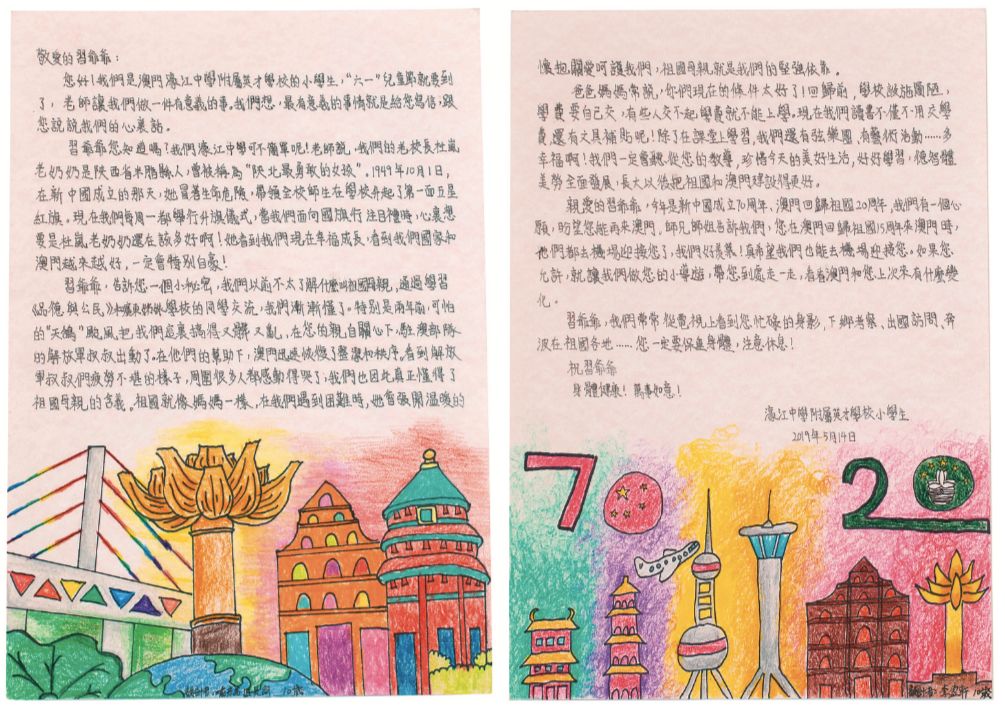 敬愛的習爺爺：
您好！我們是澳門濠江中學附屬英才學校的小學生，“六一”兒童節就要到
了，老師讓我們做一件有意義的事。我們想，最有意義的事情就是給您寫信，跟
您說說我們的心裏話。
習爺爺您知道嗎？我們濠江中學可不簡單呢！老師說，我們的老校長杜嵐
老奶奶是陝西省米脂縣人，曾被稱為“陝北最勇敢的女孩”。1949年10月1日，
在新中國成立的那天，她冒著生命危險，帶領全校師生在學校升起了第一面五星
紅旗。現在我們每周一都舉行升旗儀式，當我們面向國旗行注目禮時，心裏想
要是杜嵐老奶奶還在該多好啊！她看到我們現在幸福成長，看到我們國家和
澳門越來越好，一定會特別自豪！
習爺爺，告訴您一個小秘密，我們以前不太了解什麼叫祖國母親，通過學習
《品德與公民》學校的同學交流，我們漸漸懂了。特別是兩年前，可怕
的“天鴿”颱風把我們家裏搞得又髒又亂，在您的親自關心下，駐澳部隊
的解放軍叔叔出動了。在他們的幫助下，澳門迅速恢復了整潔和秩序。看到解放
軍叔叔們疲勞不堪的樣子，周圍很多人都感動得哭了；我們也因此真正懂得了
祖國母親的含義。祖國就像媽媽一樣，在我們遇到困難時，她會張開溫暖的
懷抱，關愛呵護我們，祖國母親就是我們的堅強依靠。
爸爸媽媽常說，你們現在的條件太好了！回歸前，學校設施簡陋，
學費要自己交，有些人交不起學費就不能上學。現在我們讀書不僅不用交學
費，還有文具補貼呢！除了在課堂上學習，我們還有弦樂團，有藝術活動……多
幸福啊！我們一定會聽從您的教導，珍惜今天的美好生活，好好學習，德智體
美勞全面發展，長大以後把祖國和澳門建設得更好。
親愛的習爺爺，今年是新中國成立70周年、澳門回歸祖國20周年，我們有一個心
願，盼望您能再來澳門，師兄師姐告訴我們，您在澳門回歸祖國15周年來澳門時，
他們都去機場迎接您了，我們好羨慕！真希望我們也能去機場迎接您。如果您
允許，就讓我們做您的小導遊，帶您到處走一走，看看澳門和您上次來有什麼變
化。
習爺爺，我們常常從電視上看到您忙碌的身影，下鄉考察、出國訪問，奔
波在祖國各地……您一定要保重身體，注意休息！
祝習爺爺
身體健康！萬事如意！
濠江中學附屬英才學校小學生
2019年5月14日
70
20
10歲
10歲